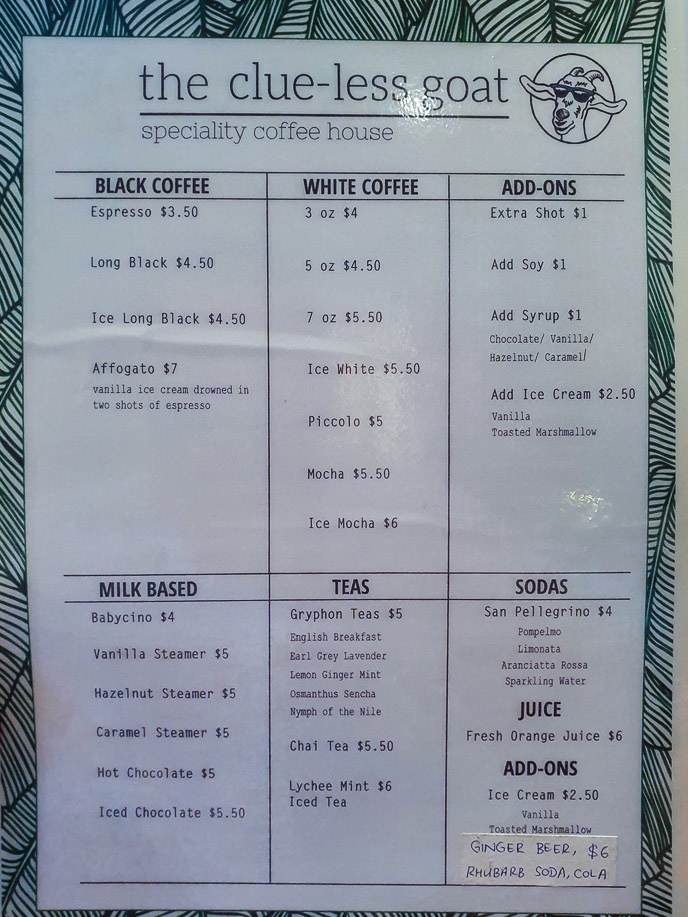 the clue-less goat
speciality coffee house
BLACK COFFEE
Espresso $3.50
Long Black $4.50
Ice Long Black $4.50
Affogato $7
vanilla ice cream drowned in
two shots of espresso
WHITE COFFEE
3 oz $4
5 oz $4.50
7 oz $5.50
Ice White $5.50
Piccolo $5
Mocha $5.50
Ice Mocha $6
ADD-ONS
Extra Shot $1
Add Soy $1
Add Syrup $1
Chocolate/ Vanilla/
Hazelnut/ Caramel/
Add Ice Cream $2.50
Vanilla
Toasted Marshmallow
MILK BASED
Babycino $4
Vanilla Steamer $5
Hazelnut Steamer $5
Caramel Steamer $5
Hot Chocolate $5
Iced Chocolate $5.50
TEAS
Gryphon Teas $5
English Breakfast
Earl Grey Lavender
Lemon Ginger Mint
Osmanthus Sencha
Nymph of the Nile
Chai Tea $5.50
Lychee Mint $6
Iced Tea
SODAS
San Pellegrino $4
Pompelmo
Limonata
Aranciatta Rossa
Sparkling Water
JUICE
Fresh Orange Juice $6
ADD-ONS
Ice Cream $2.50
Vanilla
Toasted Marshmallow
GINGER BEER, $6
RHUBARB SODA, COLA